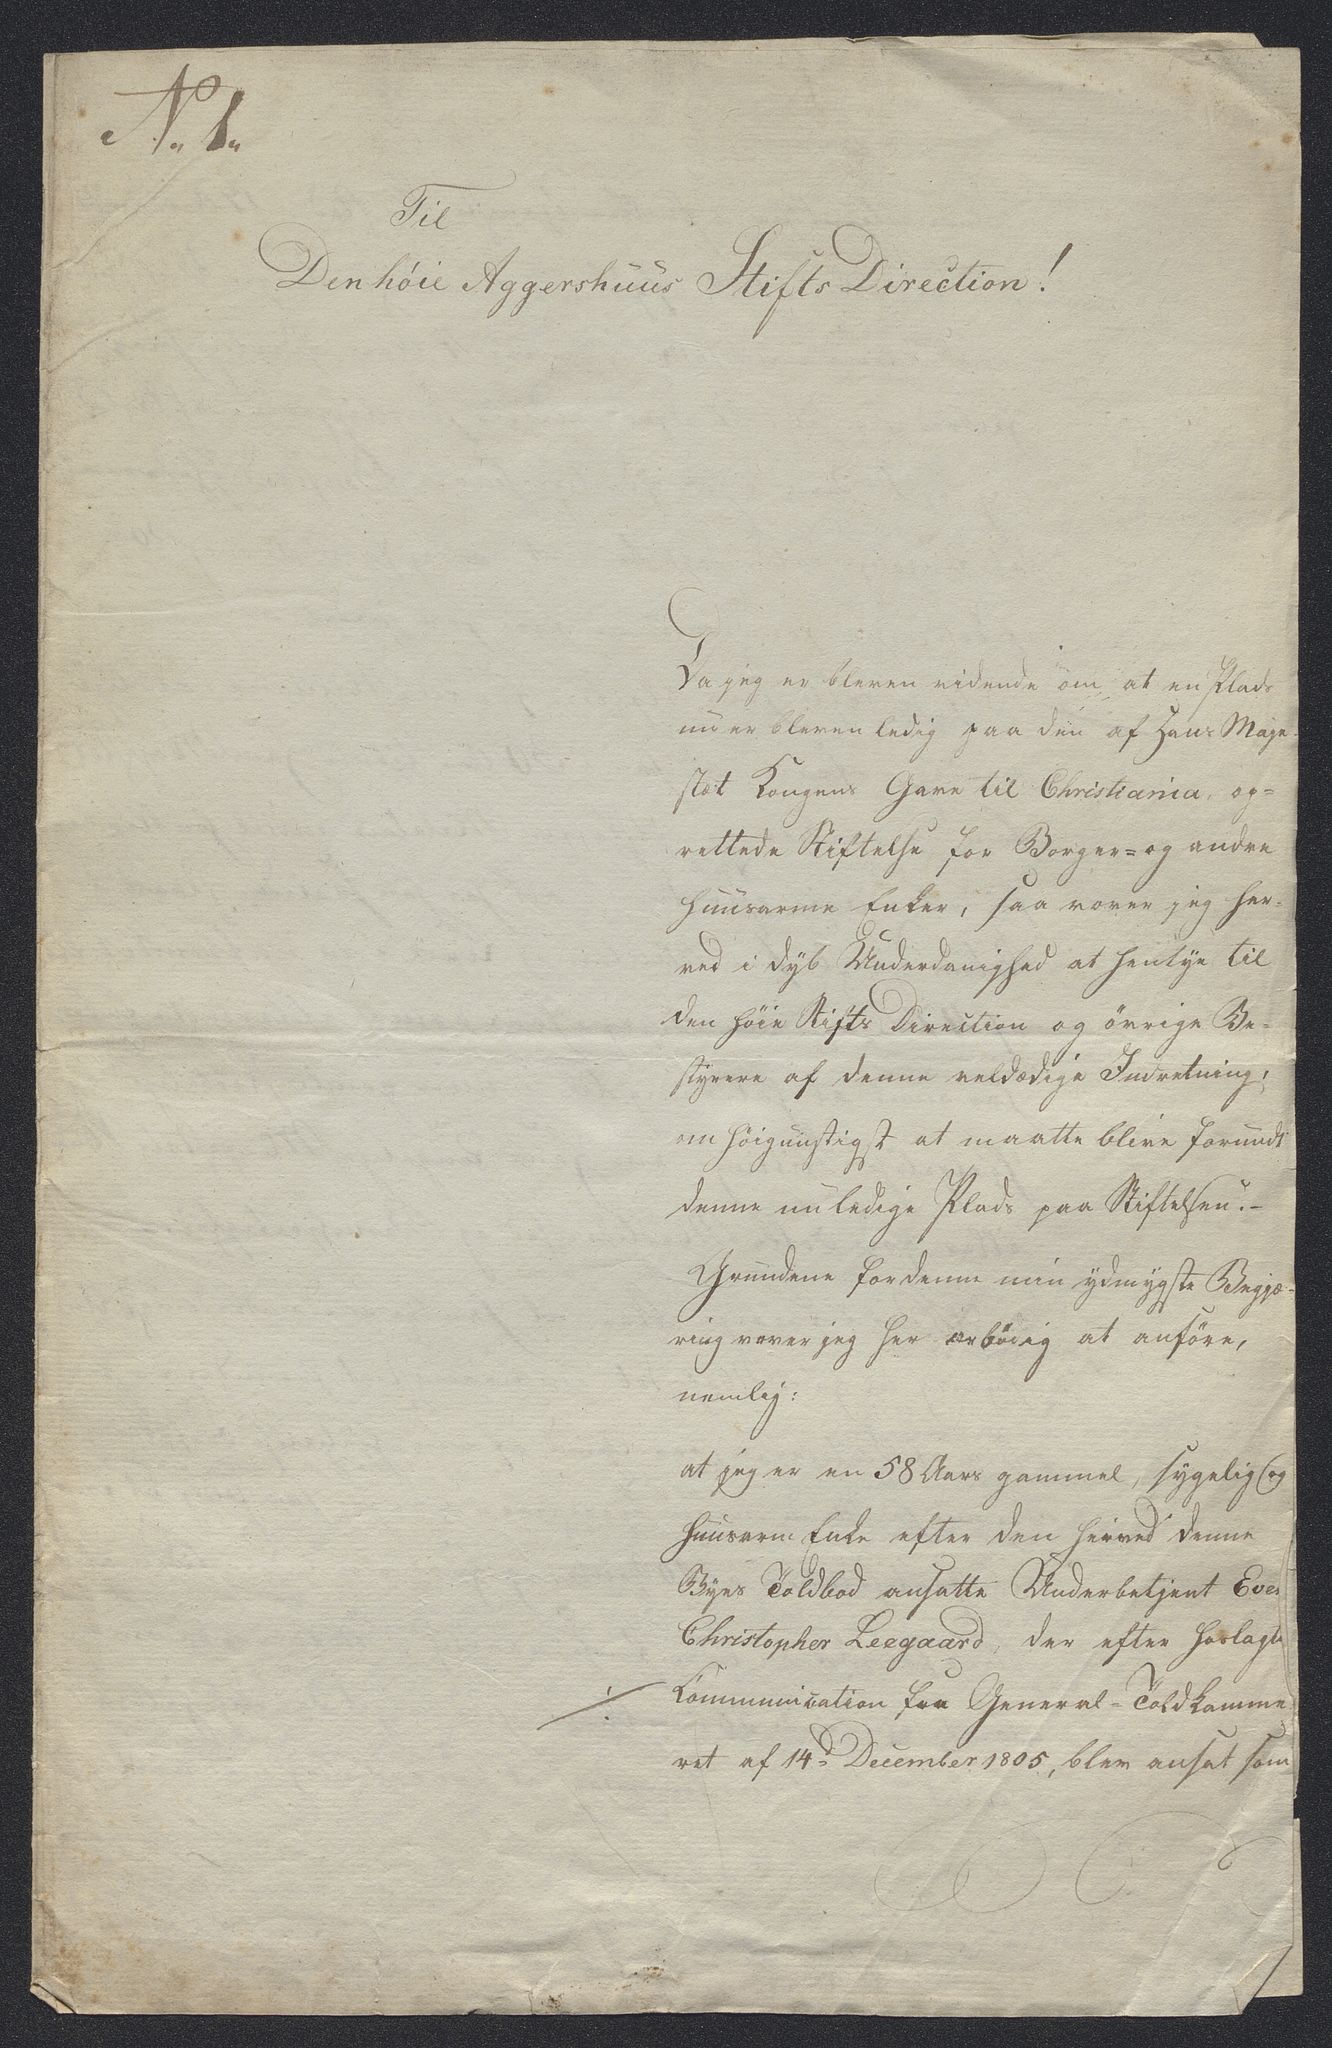 No 1.
Til
Den höie Aggershuus Stifts Direction!
Da jeg er bleven vidende om, at en Plads
nu er bleven ledig paa den af Hans Maje-
stæt Kongens Gave til Christiania, op=
rettede Stiftelse for Borger= og andre
huusarme Enker, saa vover jeg her-
ved i dyb Underdanighed at hentye til
den höie Stifts Direction og övrige Be-
styrere af denne veldædige Indretning,
om höigunstigst at maatte blive forundt
denne nu ledige Plads paa Stiftelsen.-
Grundene for denne min ydmygste Begjæ-
ring vover jeg her ærbödig at anföre,
nemlig:
at jeg er en 58 Aars gammel, sygelig og
huusarm Enke efter den her ved denne
Byes Toldbod ansatte Underbetjent Even
Christopher Leegaard, der efter hoslagte
./. Communication fra General-Toldkamme
ret af 14d December 1805, blev ansat som